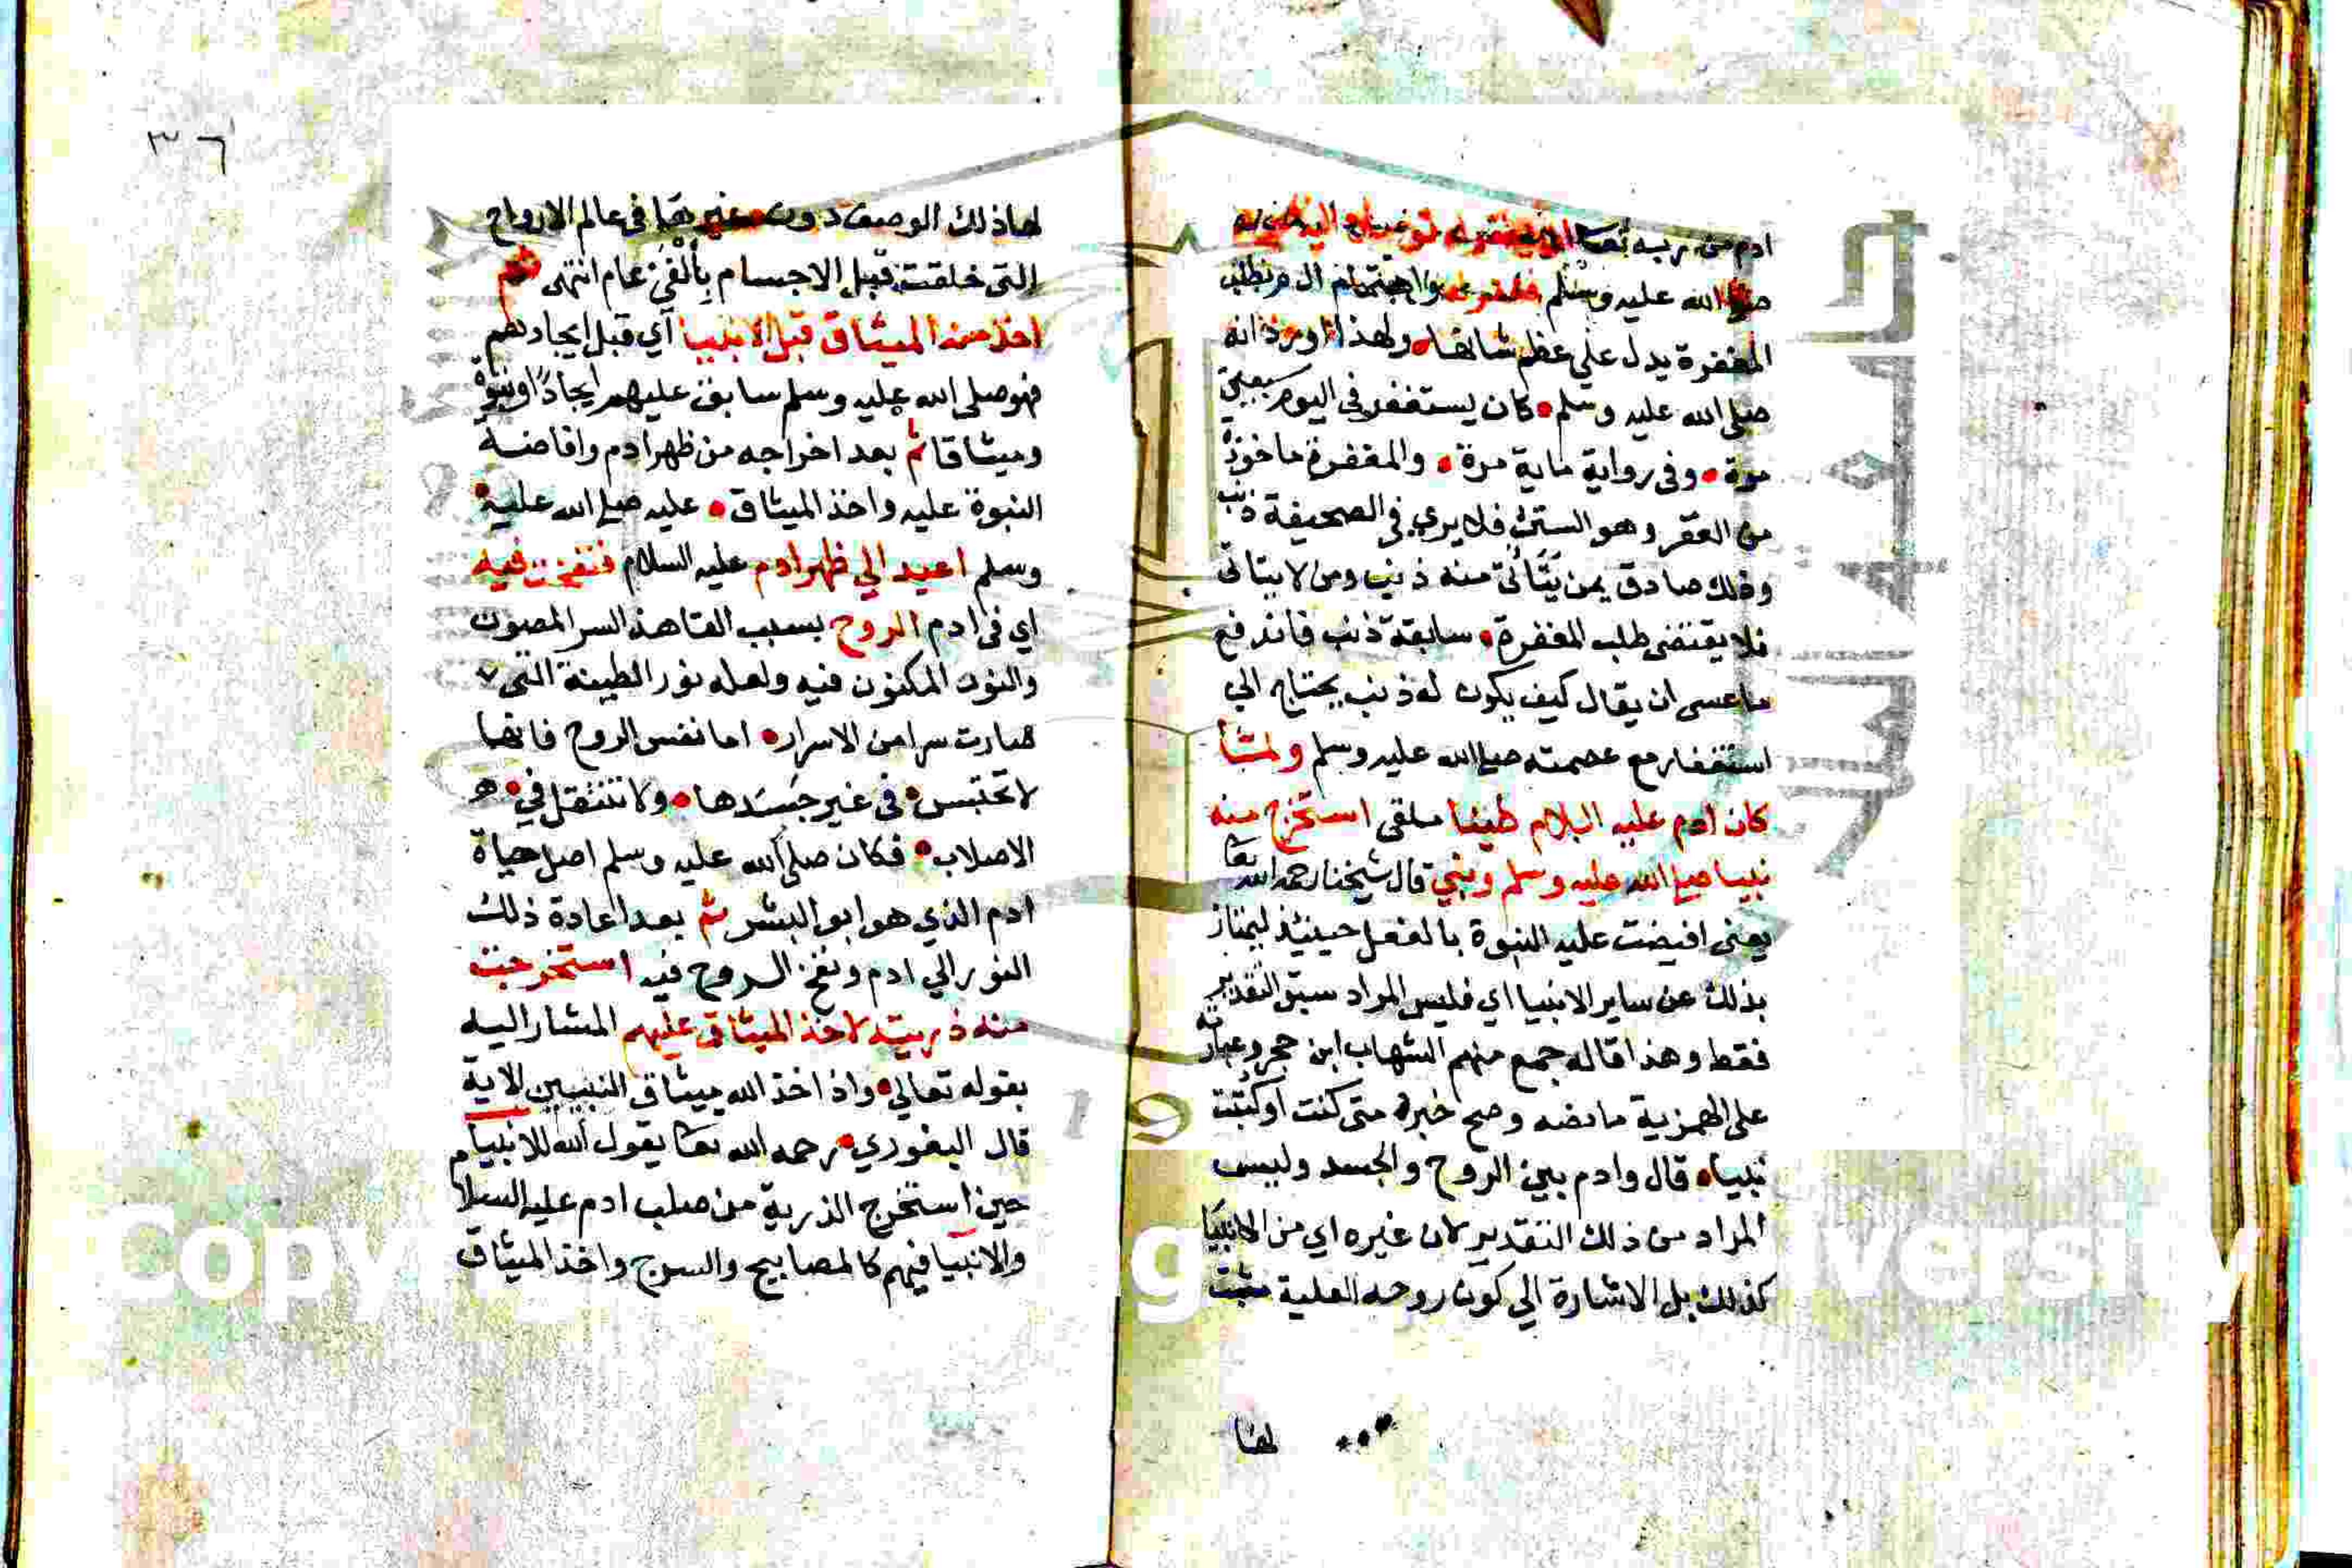 ادم من ربه تعا
صلى الله عليه وسلم
المغفرة يدل على عظم شانها ولهذا ورد انه
صلى الله عليه وسلم كان يستغفر في اليوم سبعين
مرة وفي رواية ماية مرة والمغفرة ماخوذة
من الغفر وهو الستر فلا يري في الصحيفة ذنب
وذلك صادق بمن يتأتى منه ذنب ومن لا يتاتى
فلا يقتضى طلب المغفرة سابقة ذنب فاندفع
ما عسى ان يقال كيف يكون له ذنب يحتاج الي
استغفار مع عصمته صلى الله عليه وسلم ولمشا
كان ادم عليه السلام طينا ملقى استخرج منه
نبينا صلى الله عليه وسلم ونبي قال شيخنا رحمه الله تعا
يعنى افيضت عليه النبوة بالفعل حينيذ ليمتاز
بذلك عن ساير الانبيا اي فليس المراد سبق التقدير
فقط وهذا قاله جمع منهم الشهاب ابن حجر وعبارته
على الهمزية ما نصه وصح خبر متى كنت او كتبت
نبيا قال وادم بين الروح والجسد وليس
المراد من ذلك التقدير لان غيره اي من الانبيا
كذلك بل الاشارة الي كون روحه العلية مثبت
لها
٣٦
لها ذلك الوصف دون غيرها في عالم الارواح
التي خلقت قبل الاجسام بألفي عام انتهى ثم
اخذ منه الميثاق قبل الانبيا أي قبل ايجادهم
فهو صلى الله عليه وسلم سابق عليهم ايجادًا ونبوة
وميثاقا ثم بعد اخراجه من ظهر ادم وافاضة
النبوة عليه واخذ الميثاق عليه صلى الله عليه
وسلم اعيد الي ظهر ادم عليه السلام فنفخت فيه
اي في ادم الروح بسبب القا هذا السر المصون
والنور المكنون فيه ولعله نور الطينة التي
صارت سرا من الاسرار اما نفس الروح فانها
لا تحتبس في غير جسدها ولا تنتقل في
الاصلاب فكان صلى الله عليه وسلم اصل حياة
ادم الذي هو ابو البشر ثم بعد اعادة ذلك
النور الي ادم ونفخ الروح فيه استخرجت
منه ذريته لاخذ الميثاق عليهم المشار اليه
بقوله تعالي واذ اخذ الله ميثاق النبيين الاية
قال البغوري رحمه الله تعا يقول الله للانبيا
حين استخرج الذرية من صلب ادم عليه السلام
والانبيا فيهم كالمصابيح والسرج واخذ الميثاق